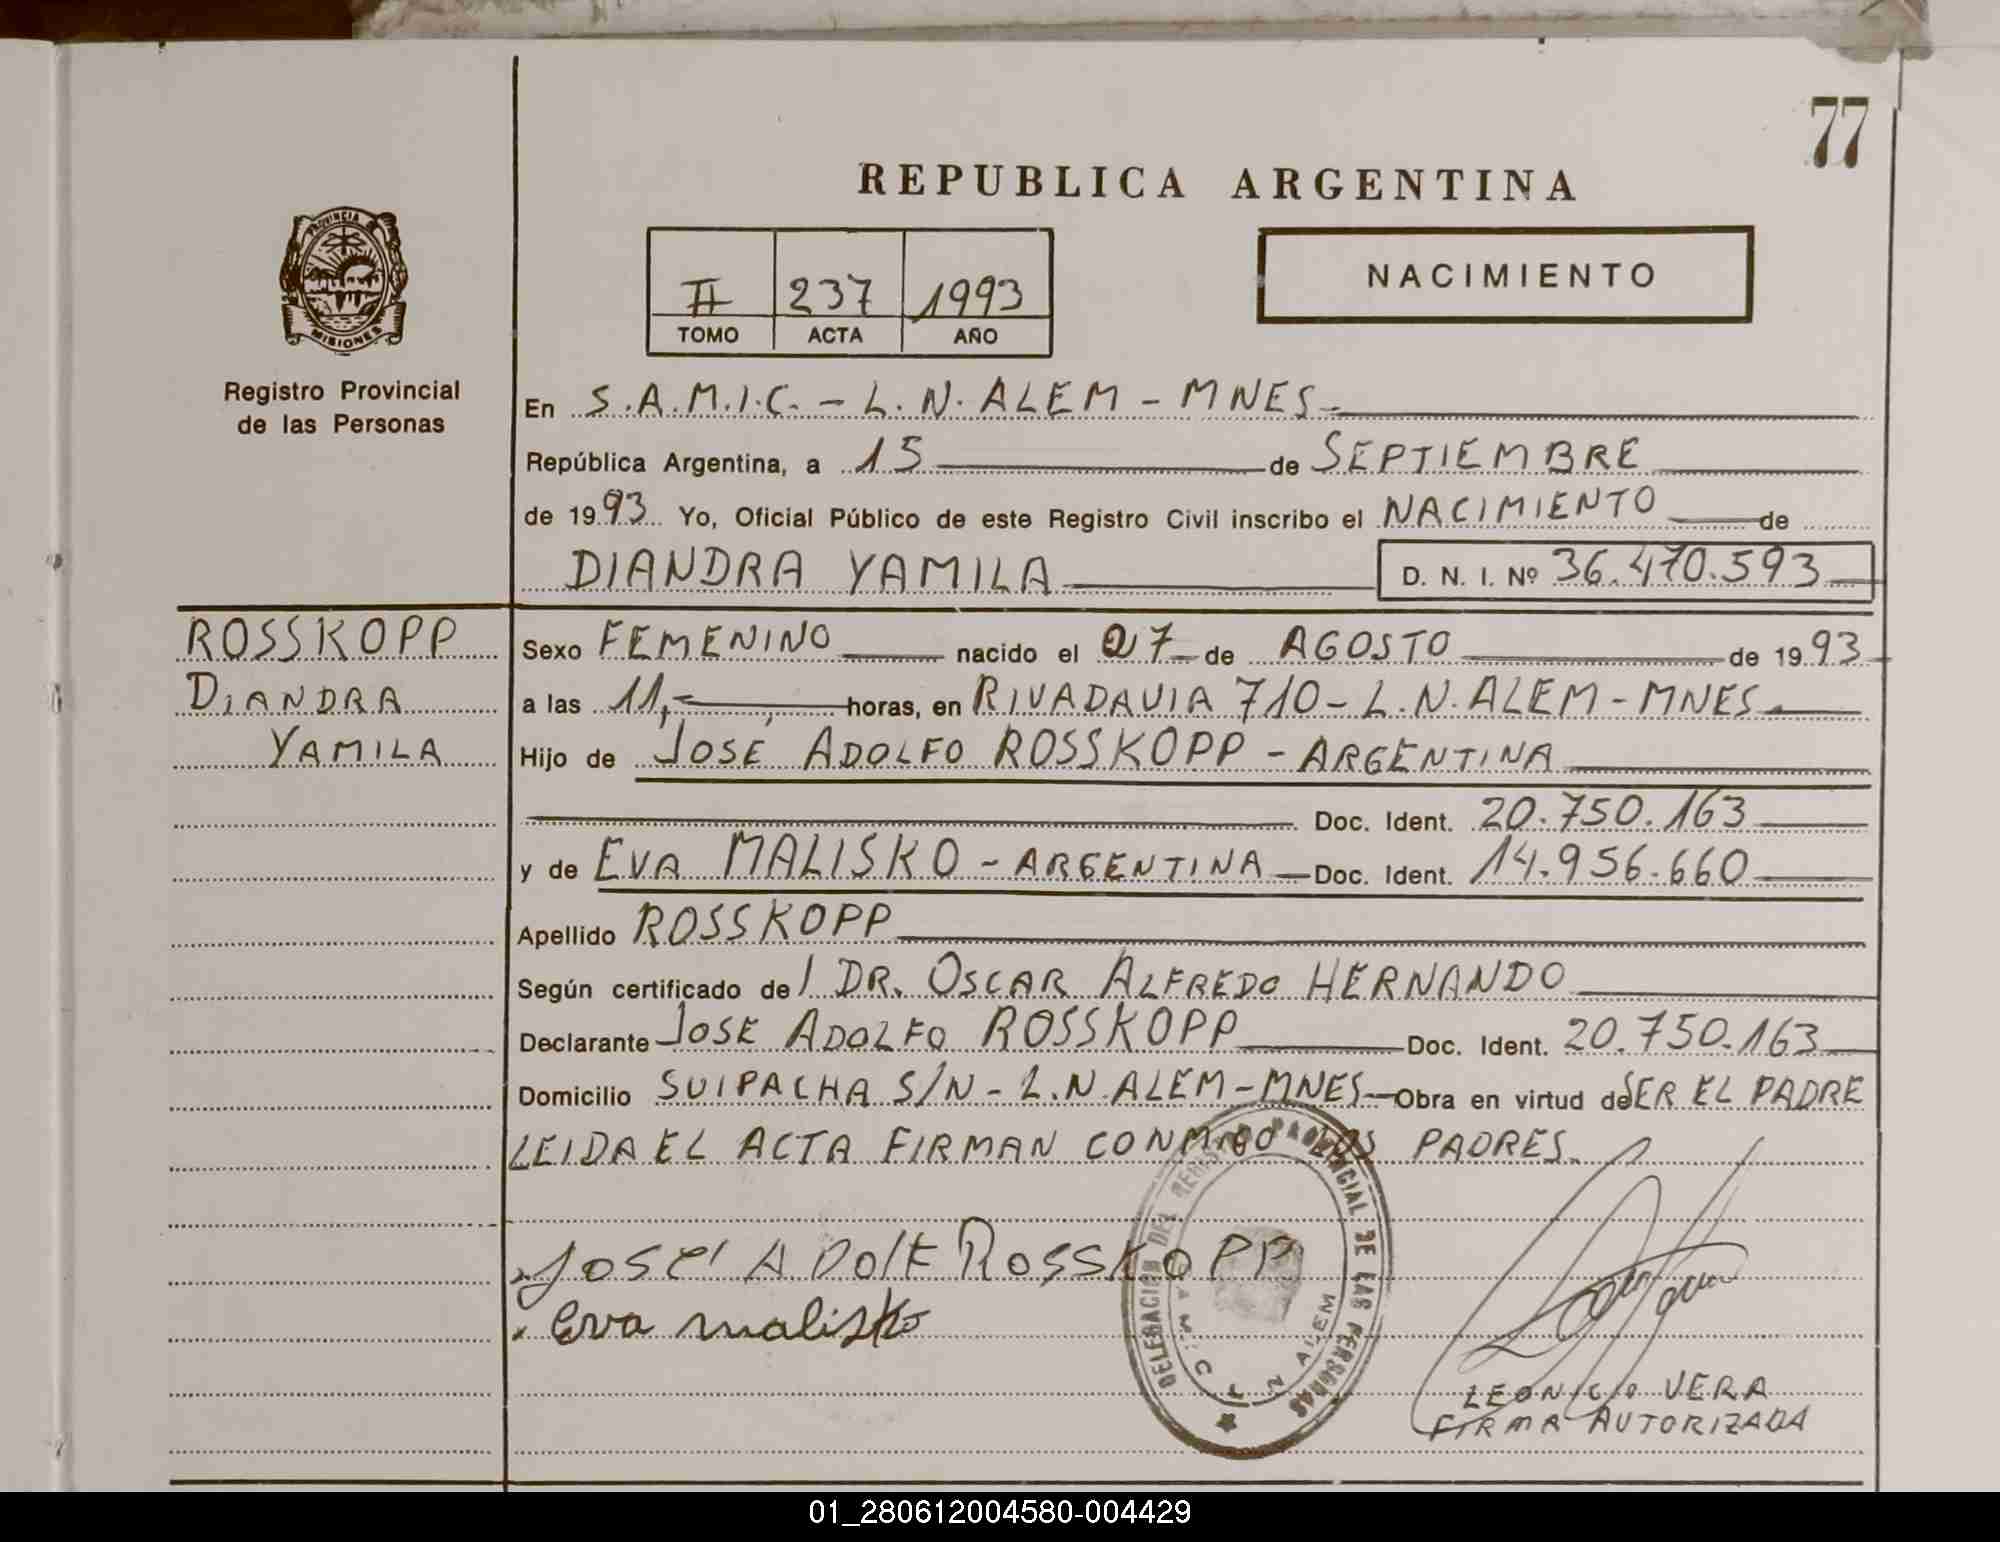 77
REPUBLICA ARGENTINA
PROVINCIA DE
MISIONES
Registro Provincial
de las Personas
II 237 1993
TOMO ACTA AÑO
NACIMIENTO
En S.A.M.I.C. - L. N. ALEM - MNES.
República Argentina, a 15 de SEPTIEMBRE
de 1993 Yo, Oficial Público de este Registro Civil inscribo el NACIMIENTO de
DIANDRA YAMILA D. N. I. Nº 36.470.593
ROSSKOPP
DIANDRA
YAMILA
Sexo FEMENINO nacido el 27 de AGOSTO de 1993
a las 11,- horas, en RIVADAVIA 710 - L. N. ALEM - MNES.
Hijo de JOSÉ ADOLFO ROSSKOPP - ARGENTINA
Doc. Ident. 20.750.163
y de EVA MALISKO - ARGENTINA Doc. Ident. 14.956.660
Apellido ROSSKOPP
Según certificado del DR. OSCAR ALFREDO HERNANDO
Declarante JOSE ADOLFO ROSSKOPP Doc. Ident. 20.750.163
Domicilio SUIPACHA S/N - L. N. ALEM - MNES - Obra en virtud de SER EL PADRE
LEIDA EL ACTA FIRMAN CONMIGO LOS PADRES.
José ADOlF ROSSKOPP
Eva malisko
DELEGACION DEL REGISTRO PROVINCIAL DE LAS PERSONAS
ALEM
LEONICIO VERA
FIRMA AUTORIZADA
01_280612004580-004429